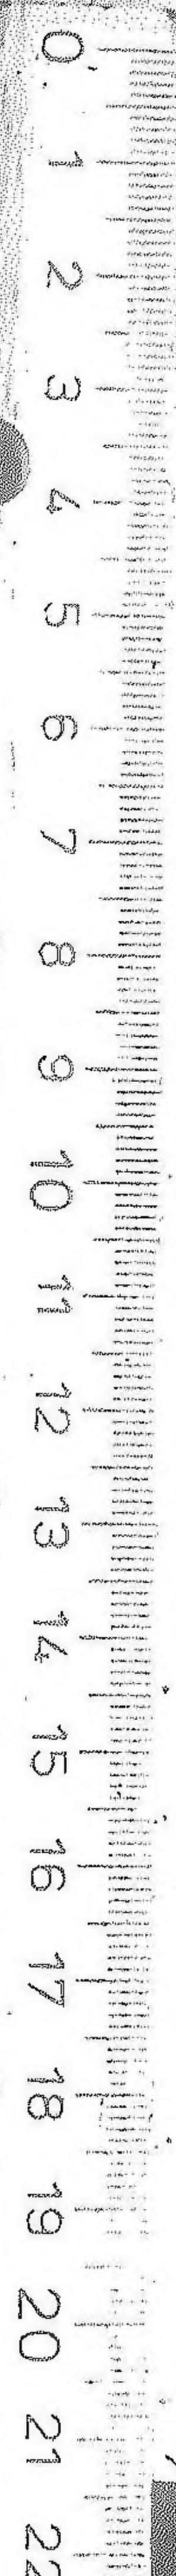 0
1
2
3
4
5
6
7
8
9
10
11
12
13
14
15
16
17
18
19
20
21
22